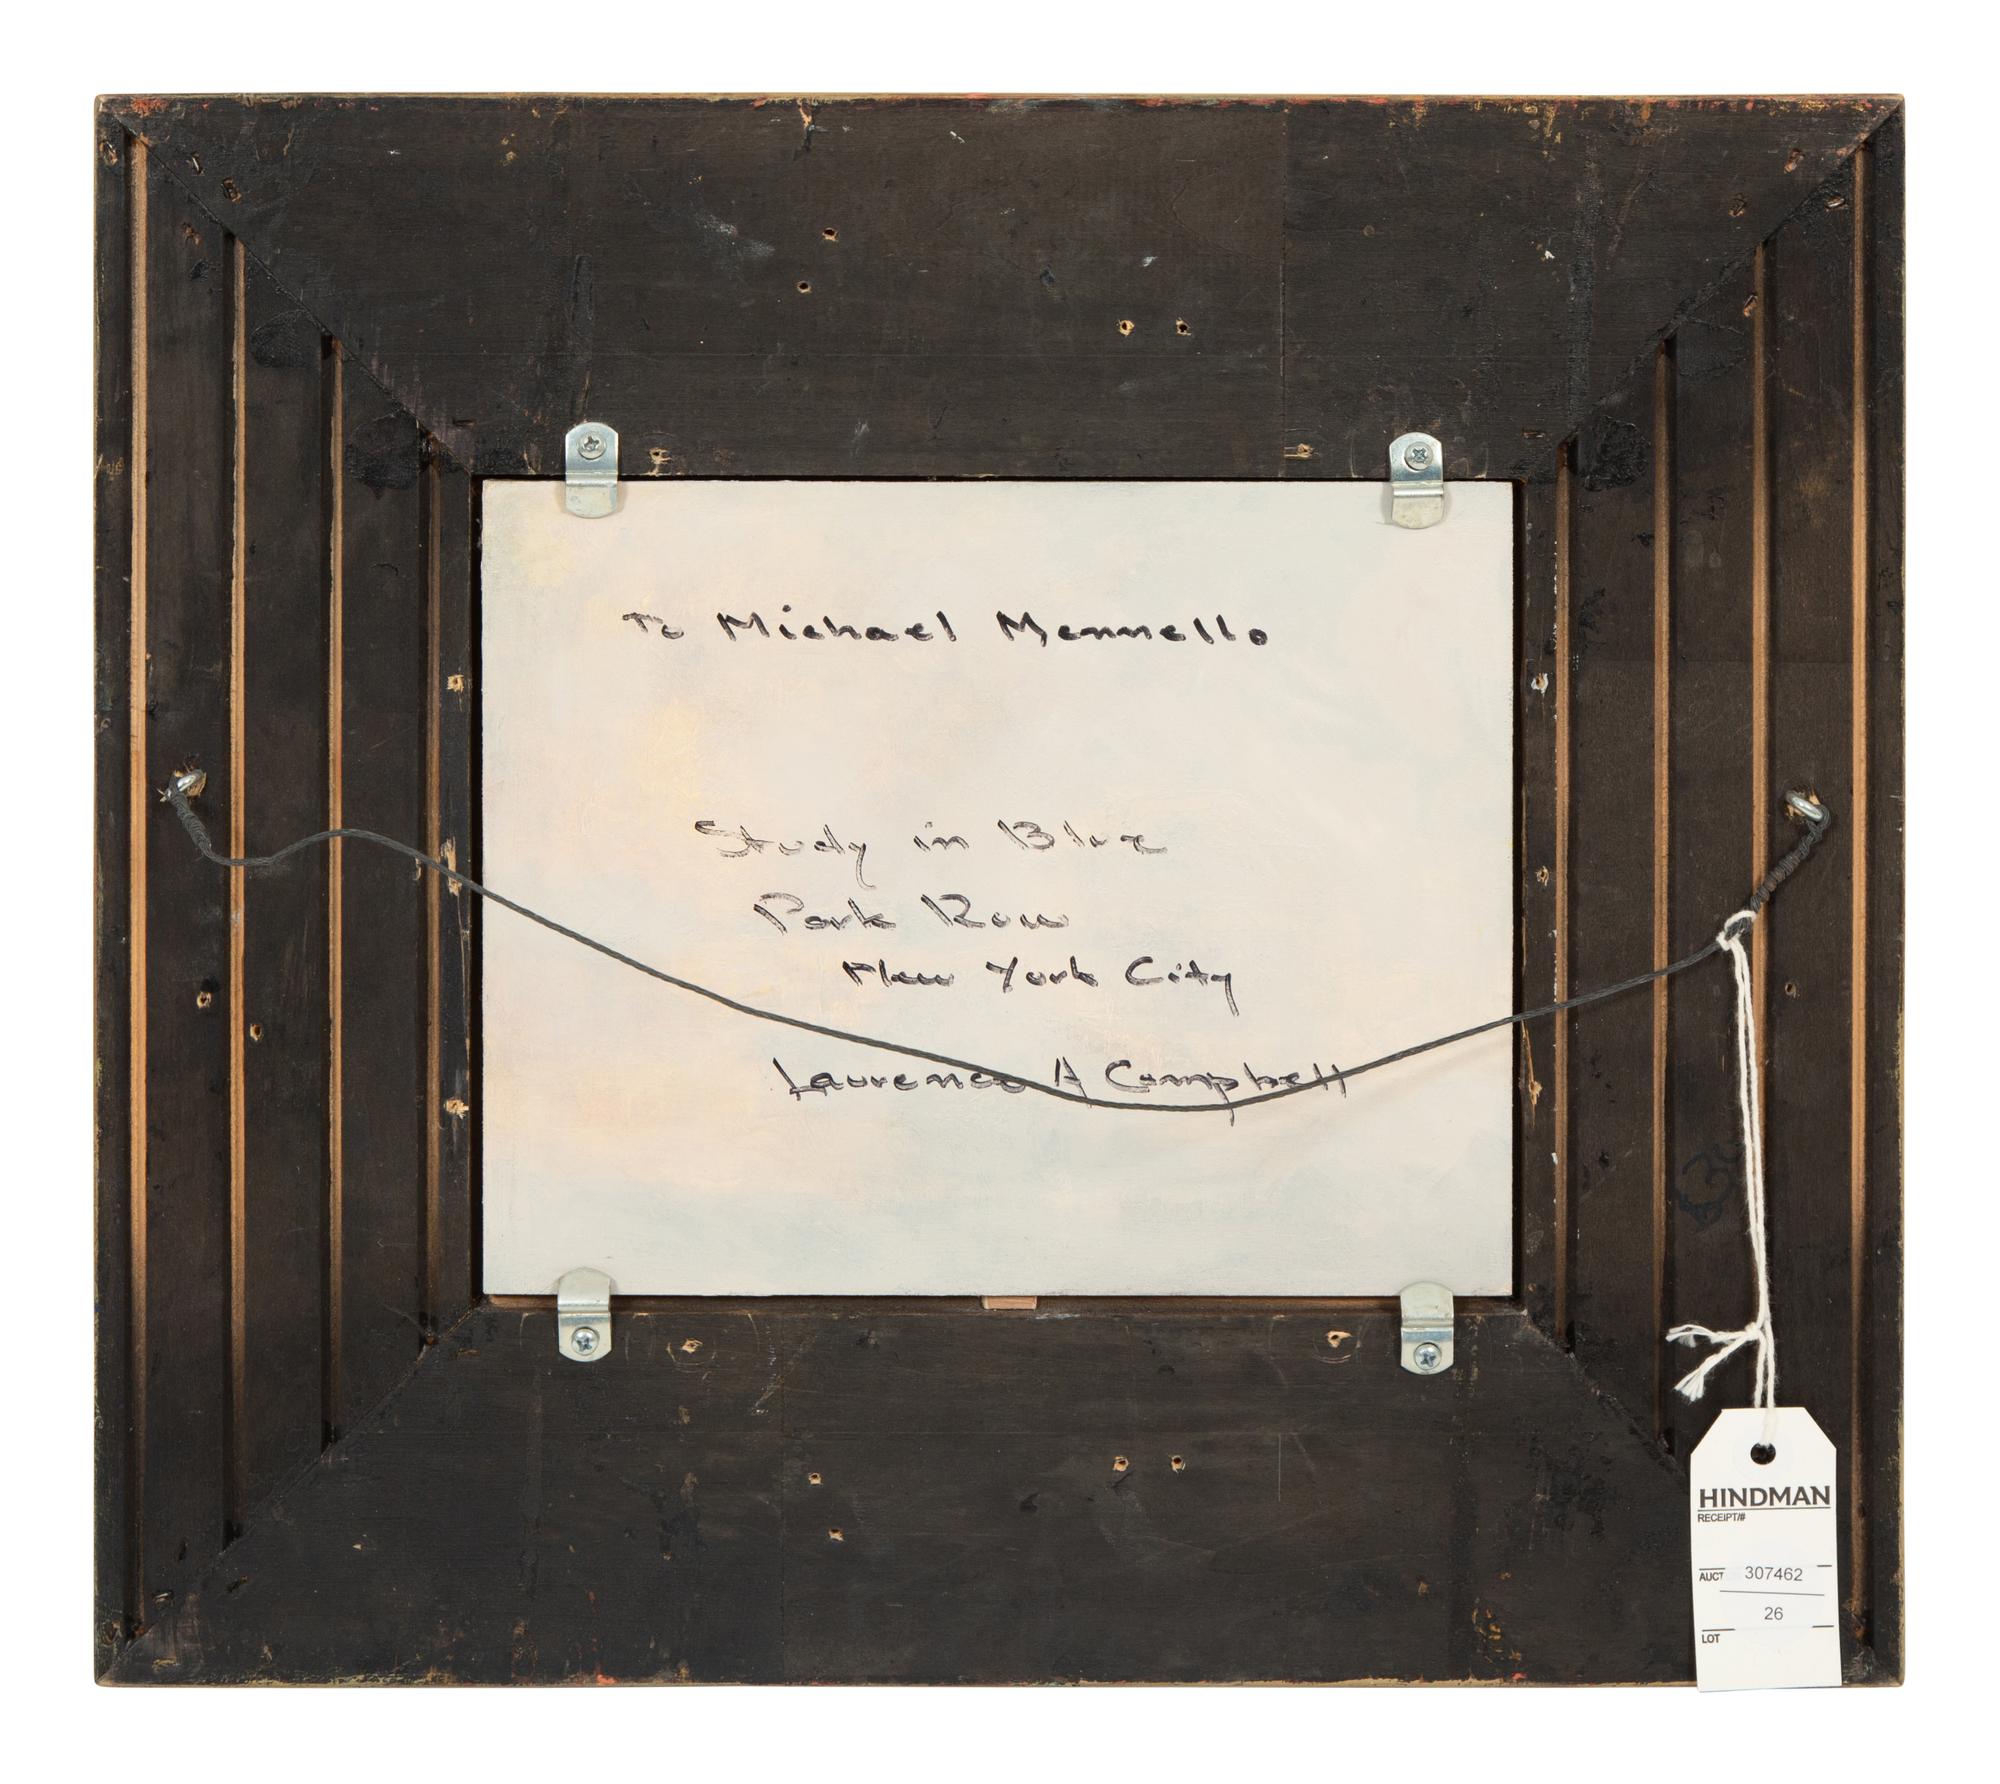 To Michael Mennello
Study in Blue
Park Row
New York City
Laurence A Campbell
HINDMAN
RECEIPT/#
AUCT 307462
26
LOT